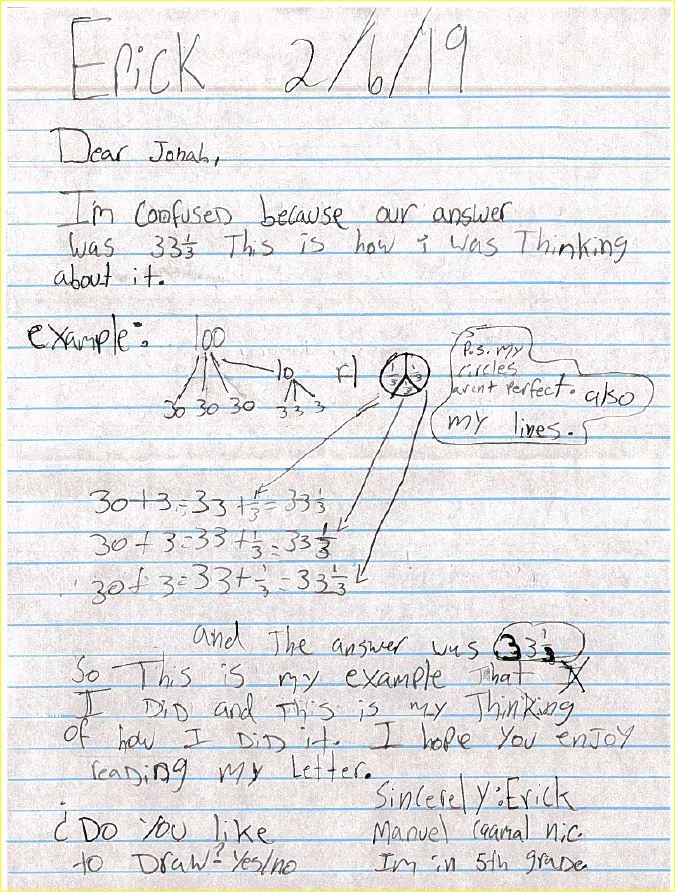 Erick 2/6/19
Dear Jonah,
I'm confused because our answer
was 33 1/3 This is how i was Thinking
about it.
example: 100
10 r1 1/3 1/3 1/3
30 30 30 3 3 3
P.s. my
circles
arent perfect. also
my lines.
30+3=33+1/3=33 1/3
30+3=33+1/3=33 1/3
30+3=33+1/3=33 1/3
and The answer was 33 1/3
So This is my example that I
I DiD and This is my Thinking
Of how I DiD it. I hope you enjoy
reaDing my Letter.
Sincerely:Erick
Manuel
Im in 5th grade.
¿Do You like
to Draw? Yes/no